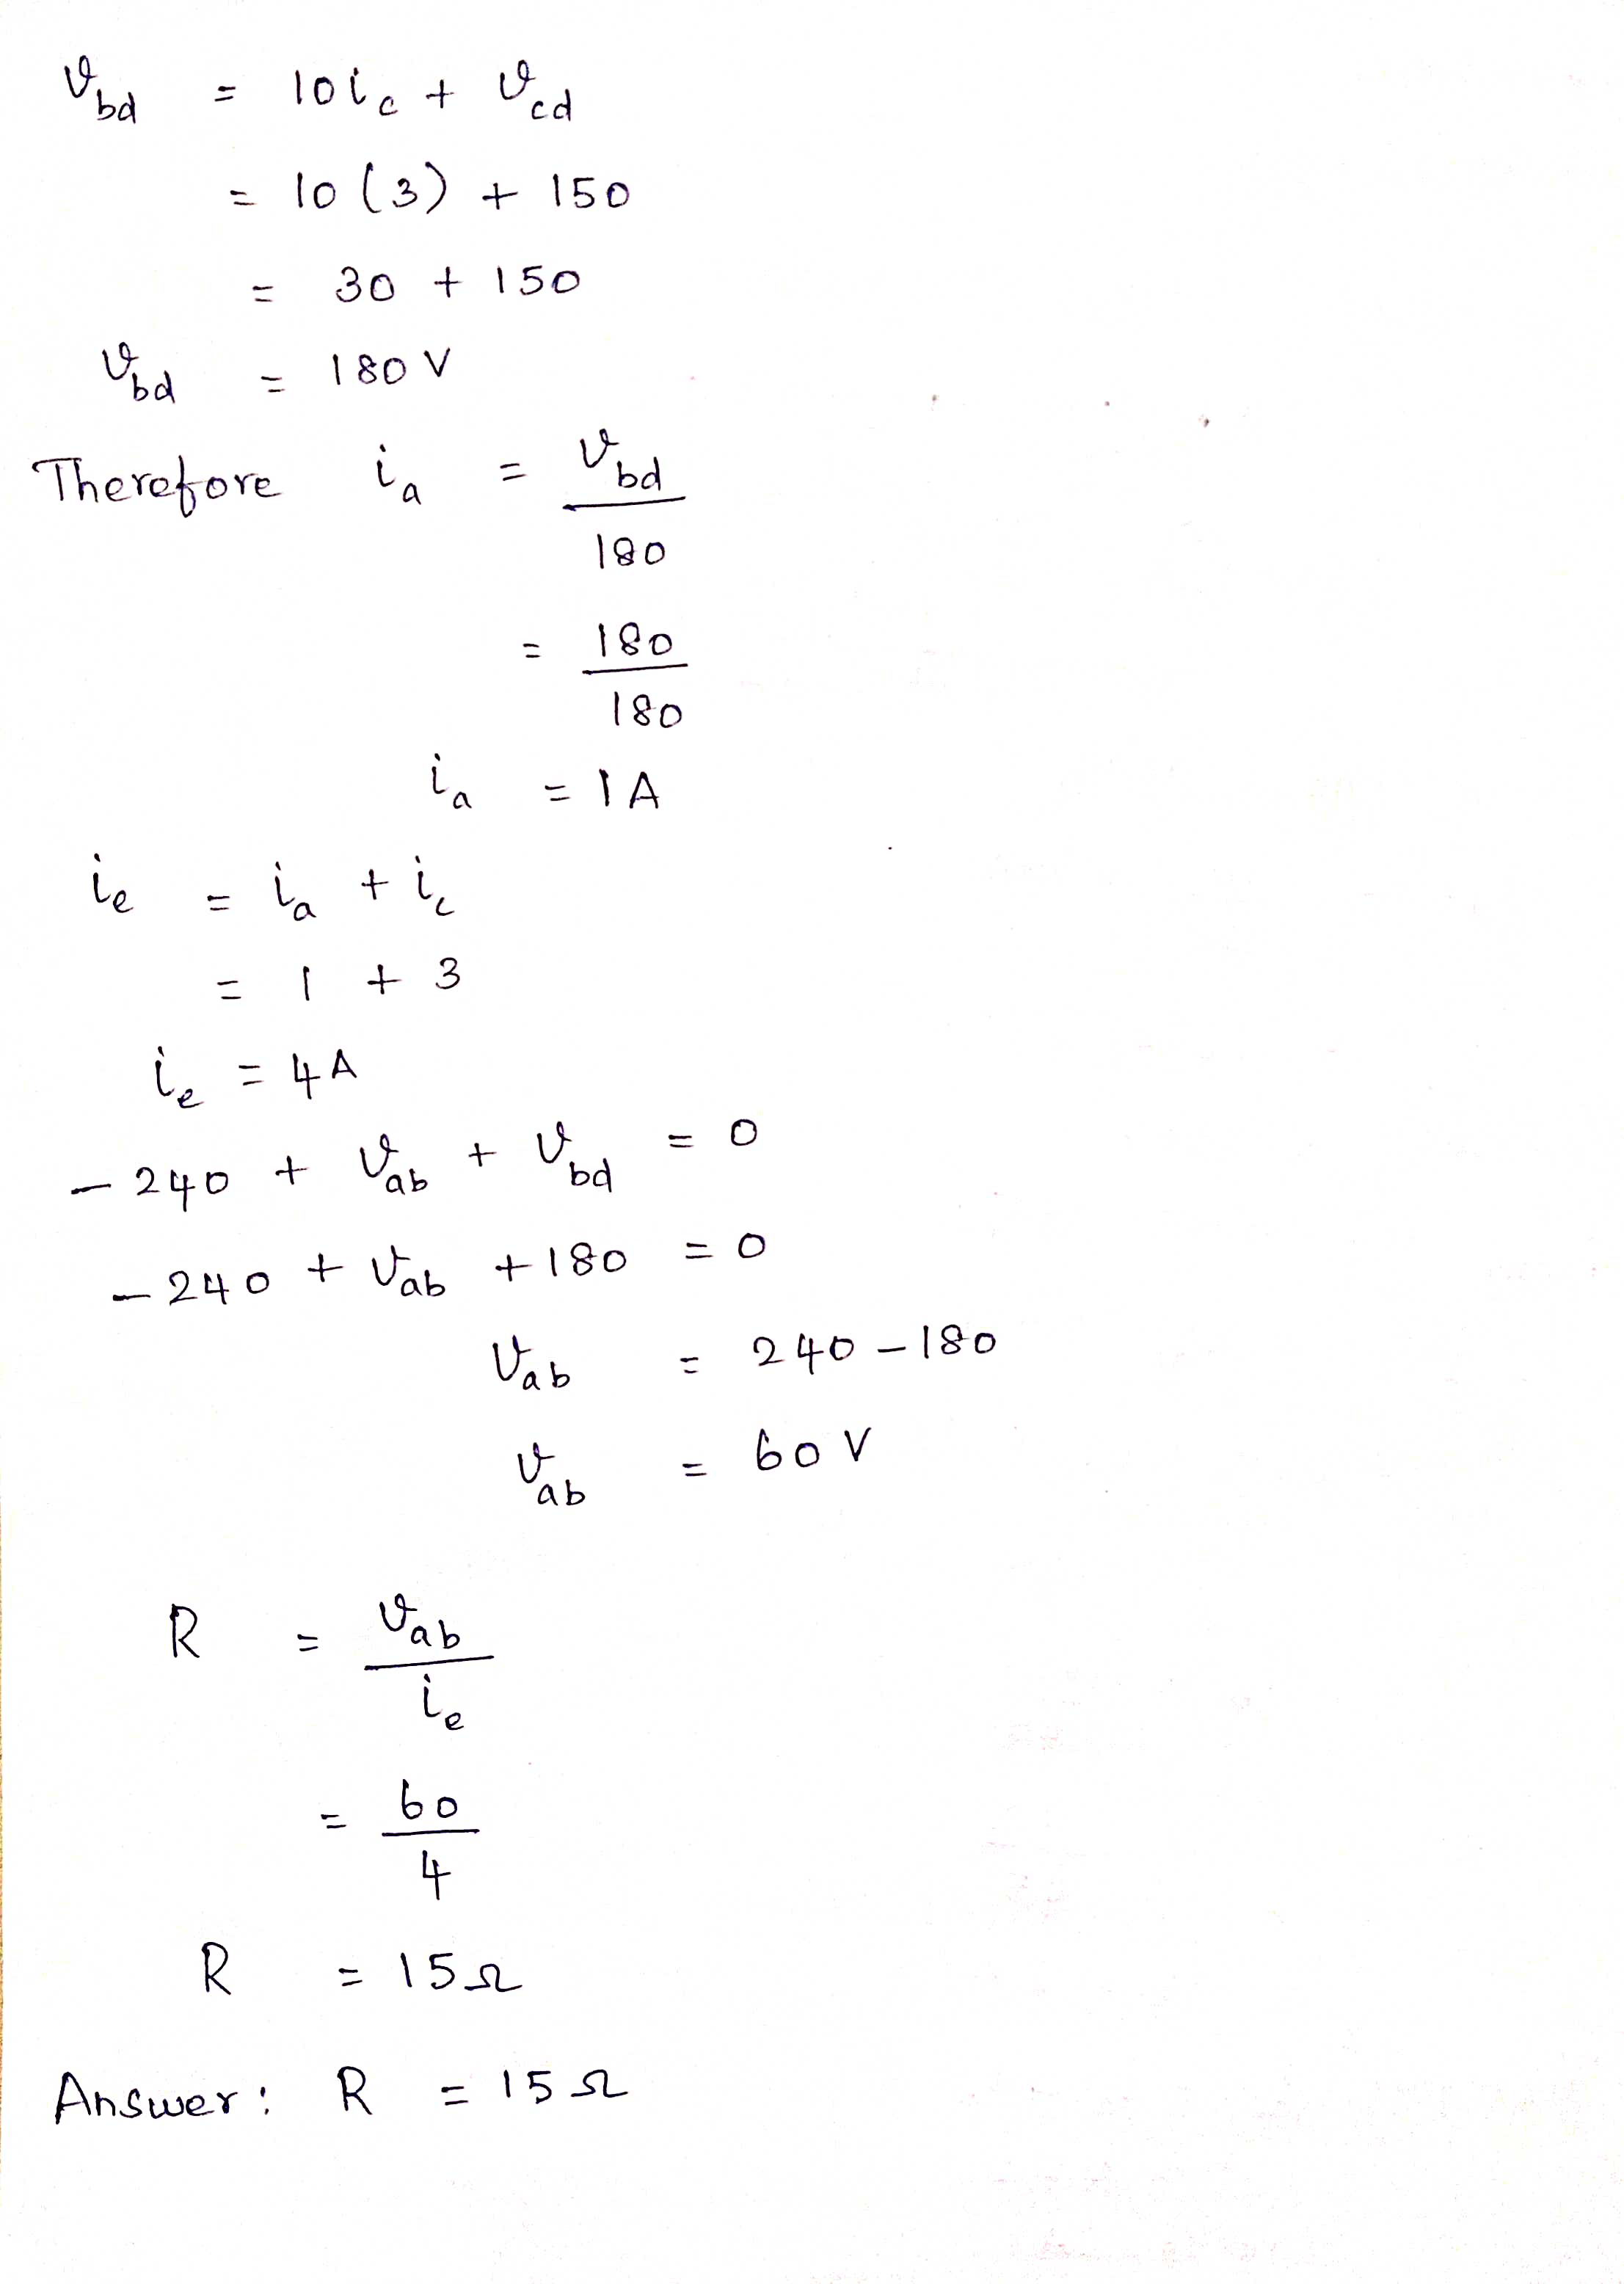 v_bd = 10 i_c + v_cd
= 10 (3) + 150
= 30 + 150
v_bd = 180 V
Therefore i_a = v_bd / 180
= 180 / 180
i_a = 1 A
i_e = i_a + i_c
= 1 + 3
i_e = 4 A
- 240 + v_ab + v_bd = 0
- 240 + v_ab + 180 = 0
v_ab = 240 - 180
v_ab = 60 V
R = v_ab / i_e
= 60 / 4
R = 15 Ω
Answer: R = 15 Ω